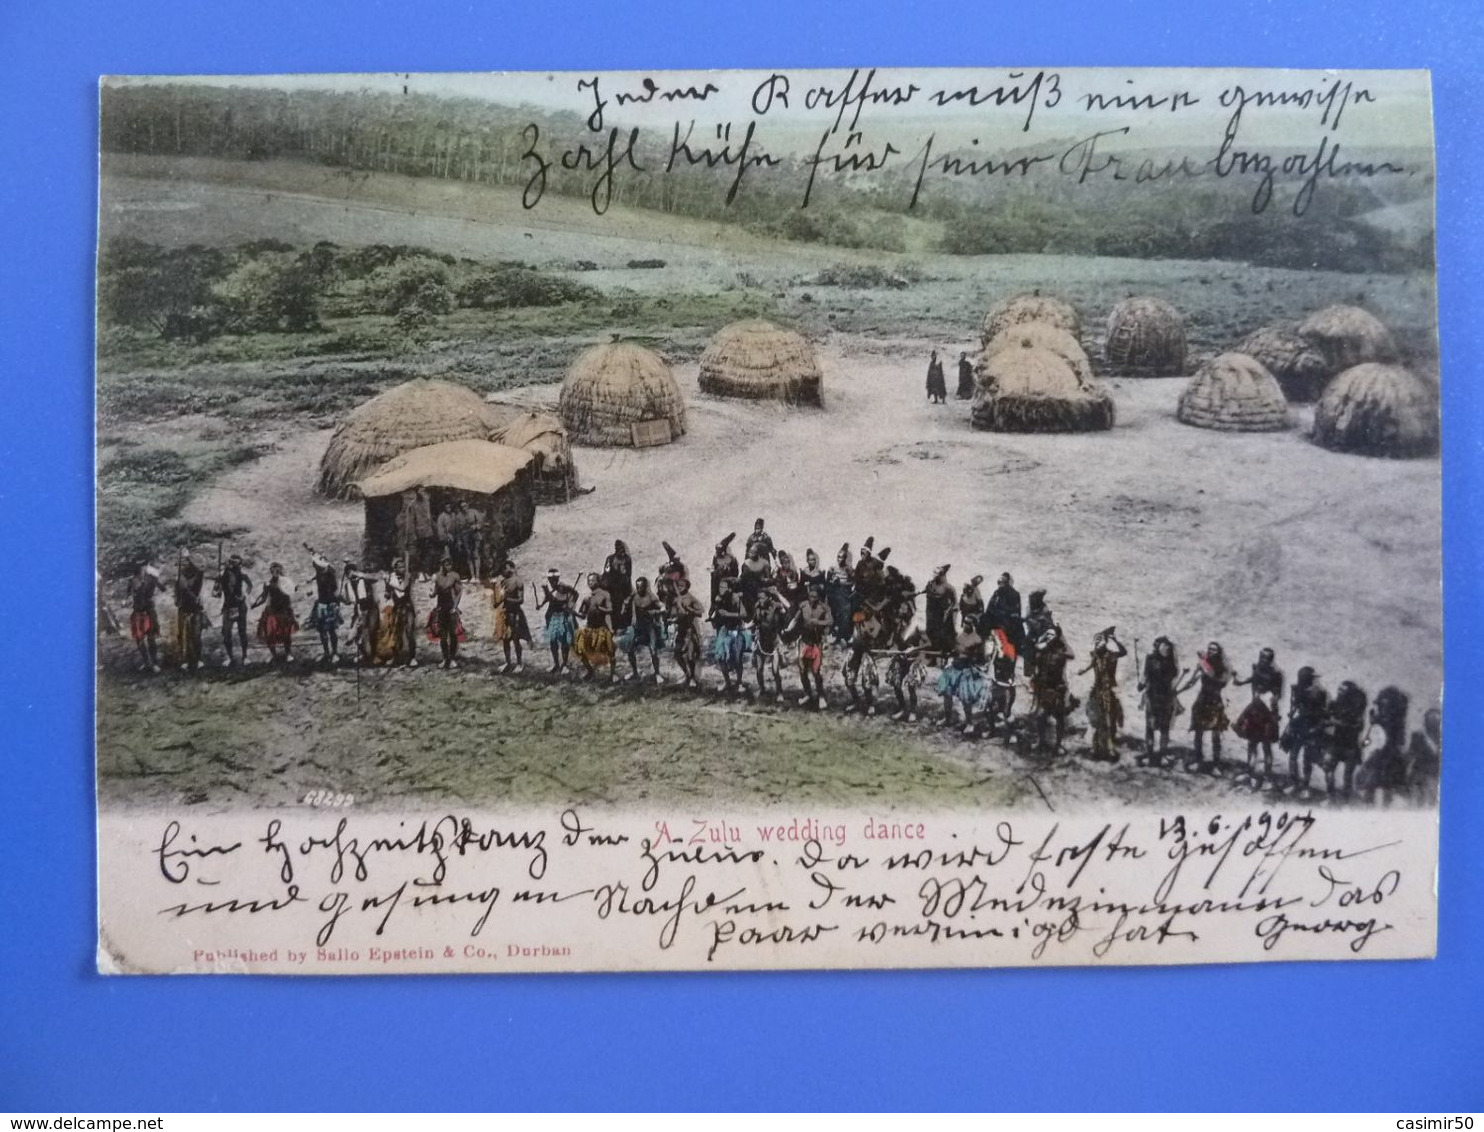 Jeder Kaffer muß eine gewisse
Zahl Kühe für seine Frau bezahlen.
68299
A Zulu wedding dance
13. 6. 1904
Ein Hochzeitstanz der Zulus. Da wird feste gesoffen
und gesungen Nachdem der Medezinmann das
Paar vereinigd hat. Georg.
Published by Sallo Epstein & Co., Durban
delcampe.net
casimir50